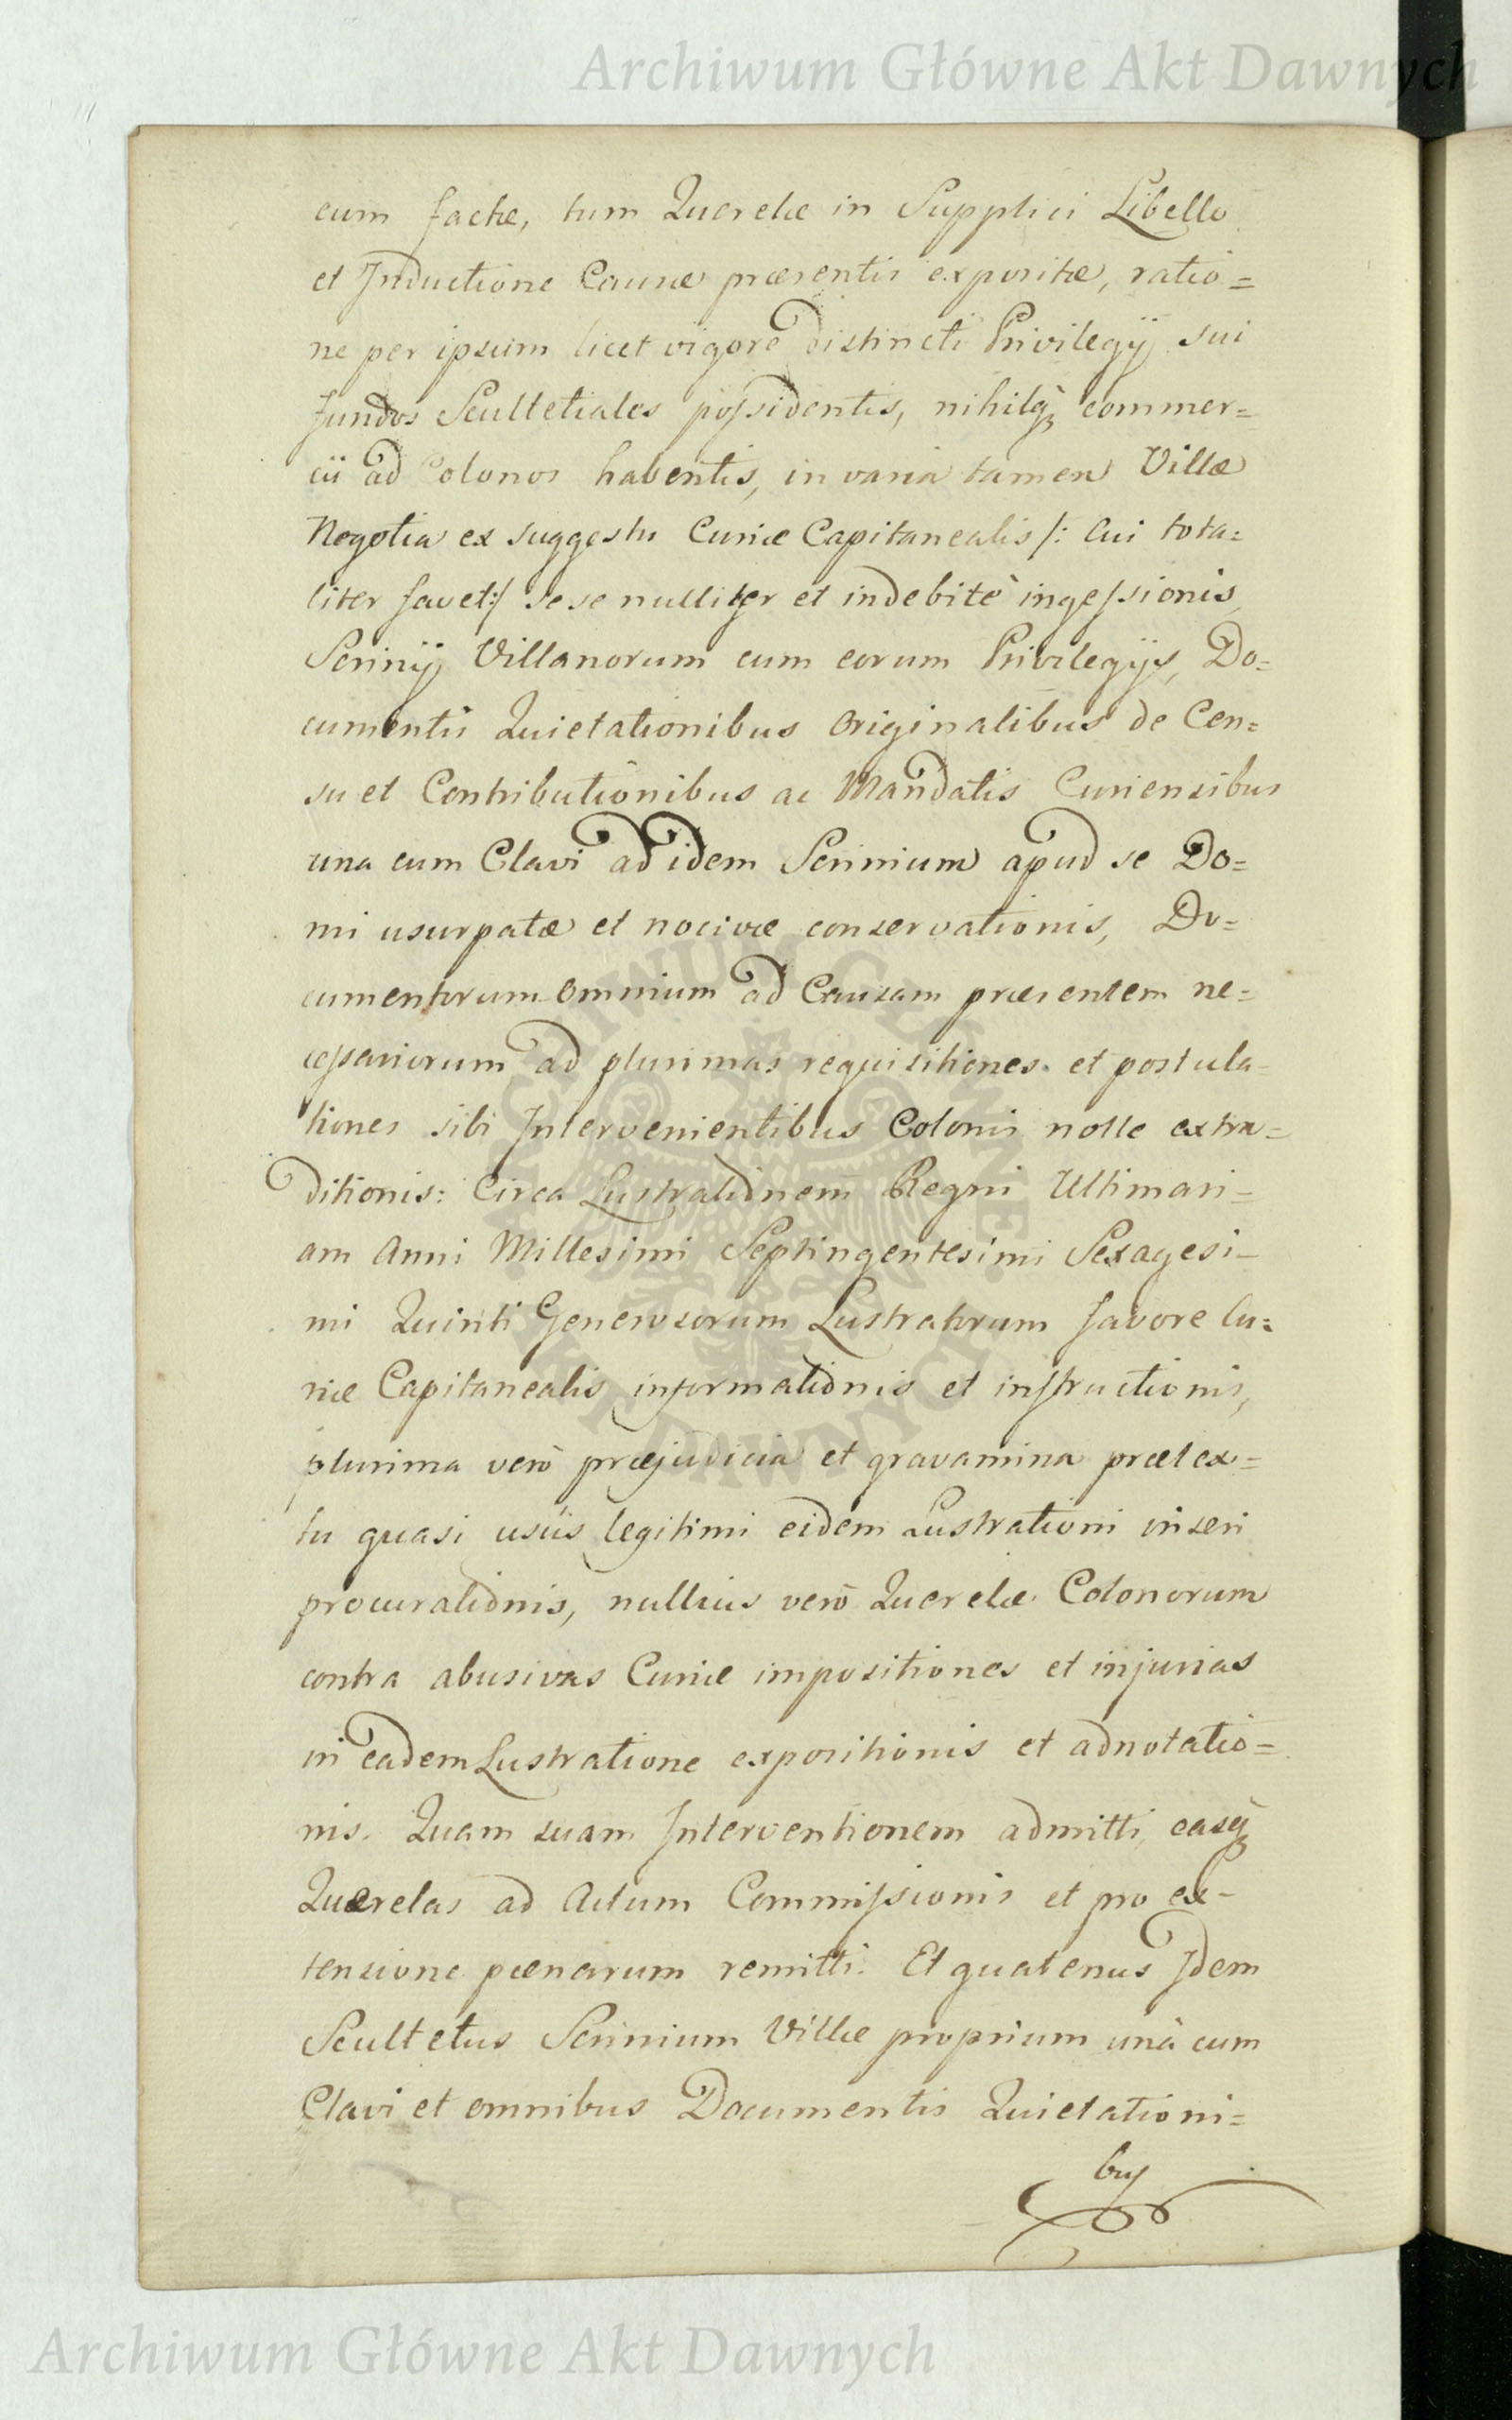 Archiwum Główne Akt Dawnych
cum factæ, tum Querelæ in Supplici Libello
et Inductione Causæ præsentis expositæ, ratio=
ne per ipsum licet vigore distincti Privilegÿ sui
fundos Scultetiales possidentis, nihilq commer=
cii ad Colonos habentis, in varia tamen Villæ
Negotia ex suggestu Curiæ Capitanealis /: cui tota=
liter favet:/ sese nulliter et indebitè ingessionis,
Scrinÿ Villanorum cum eorum Privilegÿs, Do=
cumentis Quietationibus Originalibus de Cen=
su et Contributionibus ac Mandatis Curiensibus
una cum Clavi ad idem Scrinium apud se Do=
mi usurpatæ et nocivæ conservationis, Do=
cumentorum omnium ad Causam præsentem ne=
cessariorum ad plurimas requisitiones et postula-
tiones sibi Intervenientibus Colonis nolle extra=
ditionis: Circa Lustrationem Regni Ultimari-
am Anni Millesimi Septingentesimi Sexagesi-
mi Quinti Generosorum Lustratorum favore Cu=
riæ Capitanealis informationis et instructionis,
plurima verò præjudicia et gravamina prætex=
tu quasi usûs legitimi eidem Lustrationi inseri
procurationis, nullius verò Querelæ Colonorum
contra abusivas Curiæ impositiones et injurias
in eadem Lustratione expositionis et adnotatio=
nis. Quam suam Interventionem admitti, easq
Quærelas ad Actum Commissionis et pro ex-
tensione pœnarum remitti. Et quatenus Idem
Scultetus Scrinium Villæ proprium unà cum
Clavi et omnibus Documentis Quietationi=
bus
Archiwum Główne Akt Dawnych